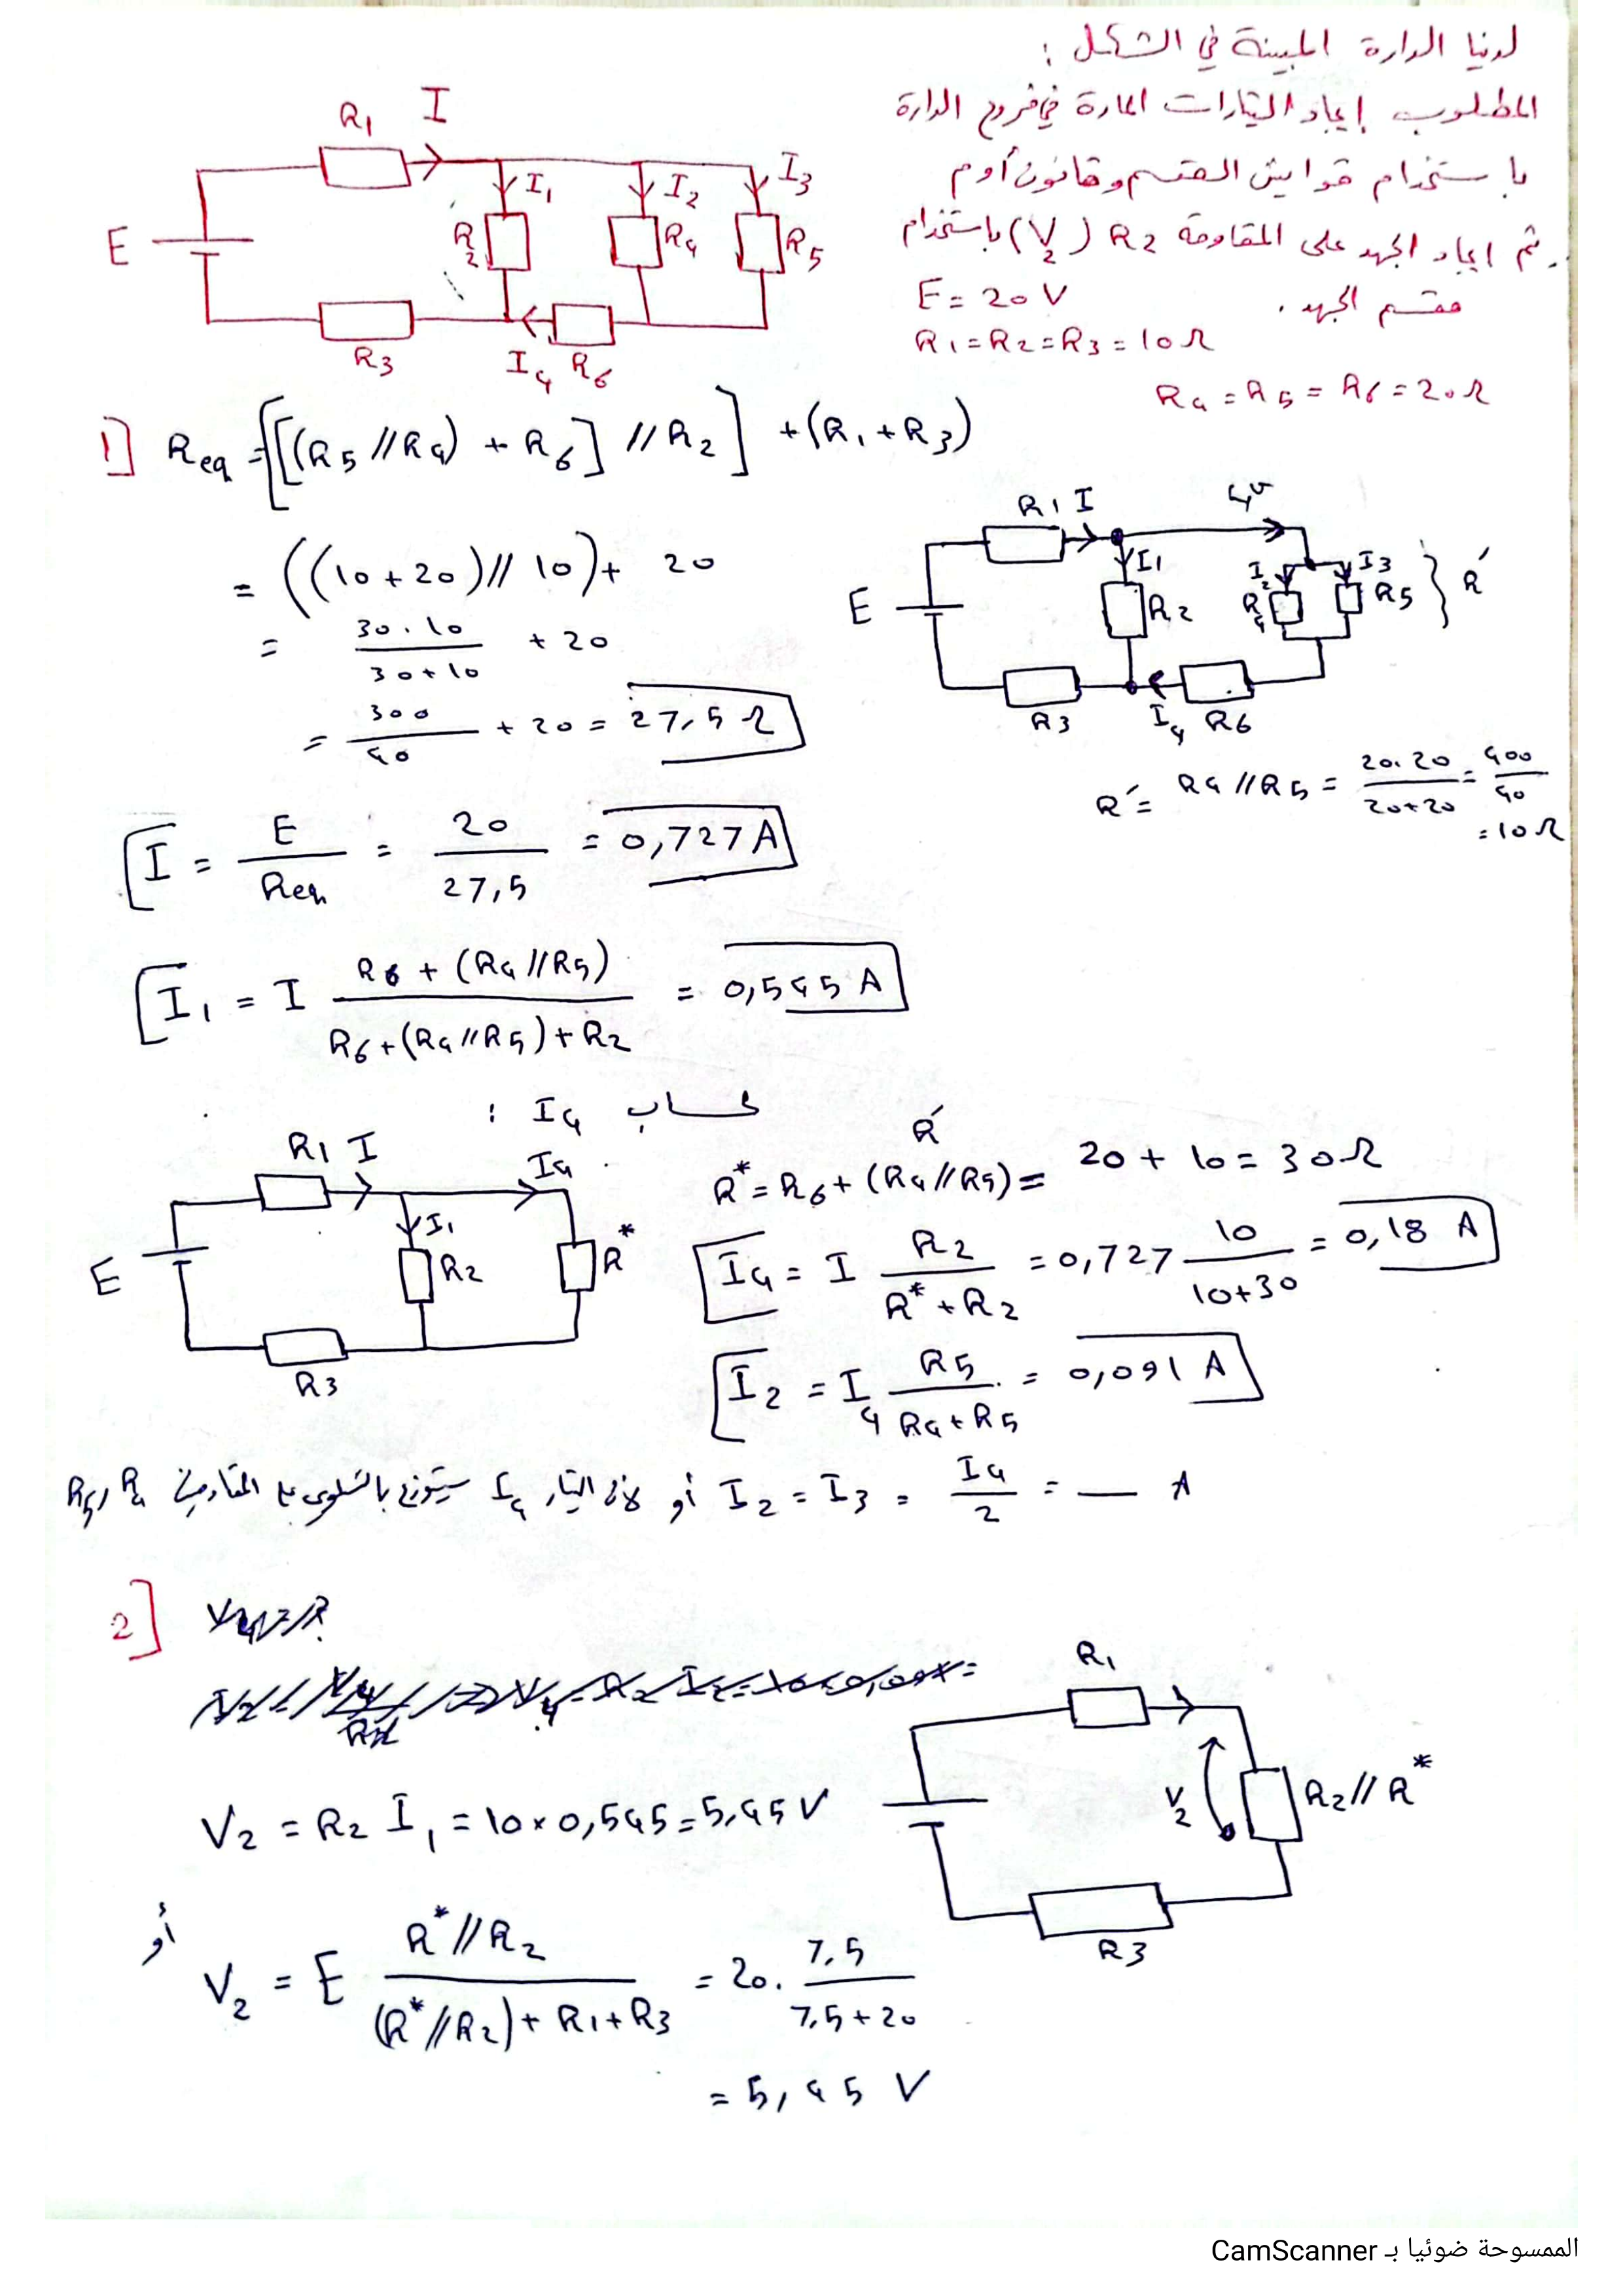 لدينا الدارة المبينة في الشكل :
المطلوب إيجاد التيارات المارة في فروع الدارة
باستخدام قوانين المقسم وقانون أوم
ثم ايجاد الجهد على المقاومة R2 (V2) باستخدام
مقسم الجهد .
E = 20 V
R1 = R2 = R3 = 10 Ω
R4 = R5 = R6 = 20 Ω
R1 I
I1 I2 I3
E R2 R4 R5
R3 I4 R6
1] Req = [[(R5 // R4) + R6] // R2] + (R1 + R3)
= ((10 + 20) // 10) + 20
= 30 . 10 / 30 + 10 + 20
= 300 / 40 + 20 = 27,5 Ω
R1 I
I1 I2 I3
E R2 R4 R5 } R'
R3 I4 R6
R' = R4 // R5 = 20 . 20 / 20 + 20 = 400 / 40
= 10 Ω
I = E / Req = 20 / 27,5 = 0,727 A
I1 = I R6 + (R4 // R5) / R6 + (R4 // R5) + R2 = 0,545 A
حساب I4 :
R1 I I4
I1
E R2 R*
R3
R'
R* = R6 + (R4 // R5) = 20 + 10 = 30 Ω
I4 = I R2 / R* + R2 = 0,727 10 / 10 + 30 = 0,18 A
I2 = I4 R5 / R4 + R5 = 0,091 A
أو I2 = I3 = I4 / 2 = — A لأن التيار I4 سيتوزع بالتساوي R4 و R5
2]
V2 = R2 I1 = 10 × 0,545 = 5,45 V
R1
V2 R2 // R*
R3
أو
V2 = E R* // R2 / (R* // R2) + R1 + R3 = 20 . 7,5 / 7,5 + 20
= 5,45 V
الممسوحة ضوئيا بـ CamScanner